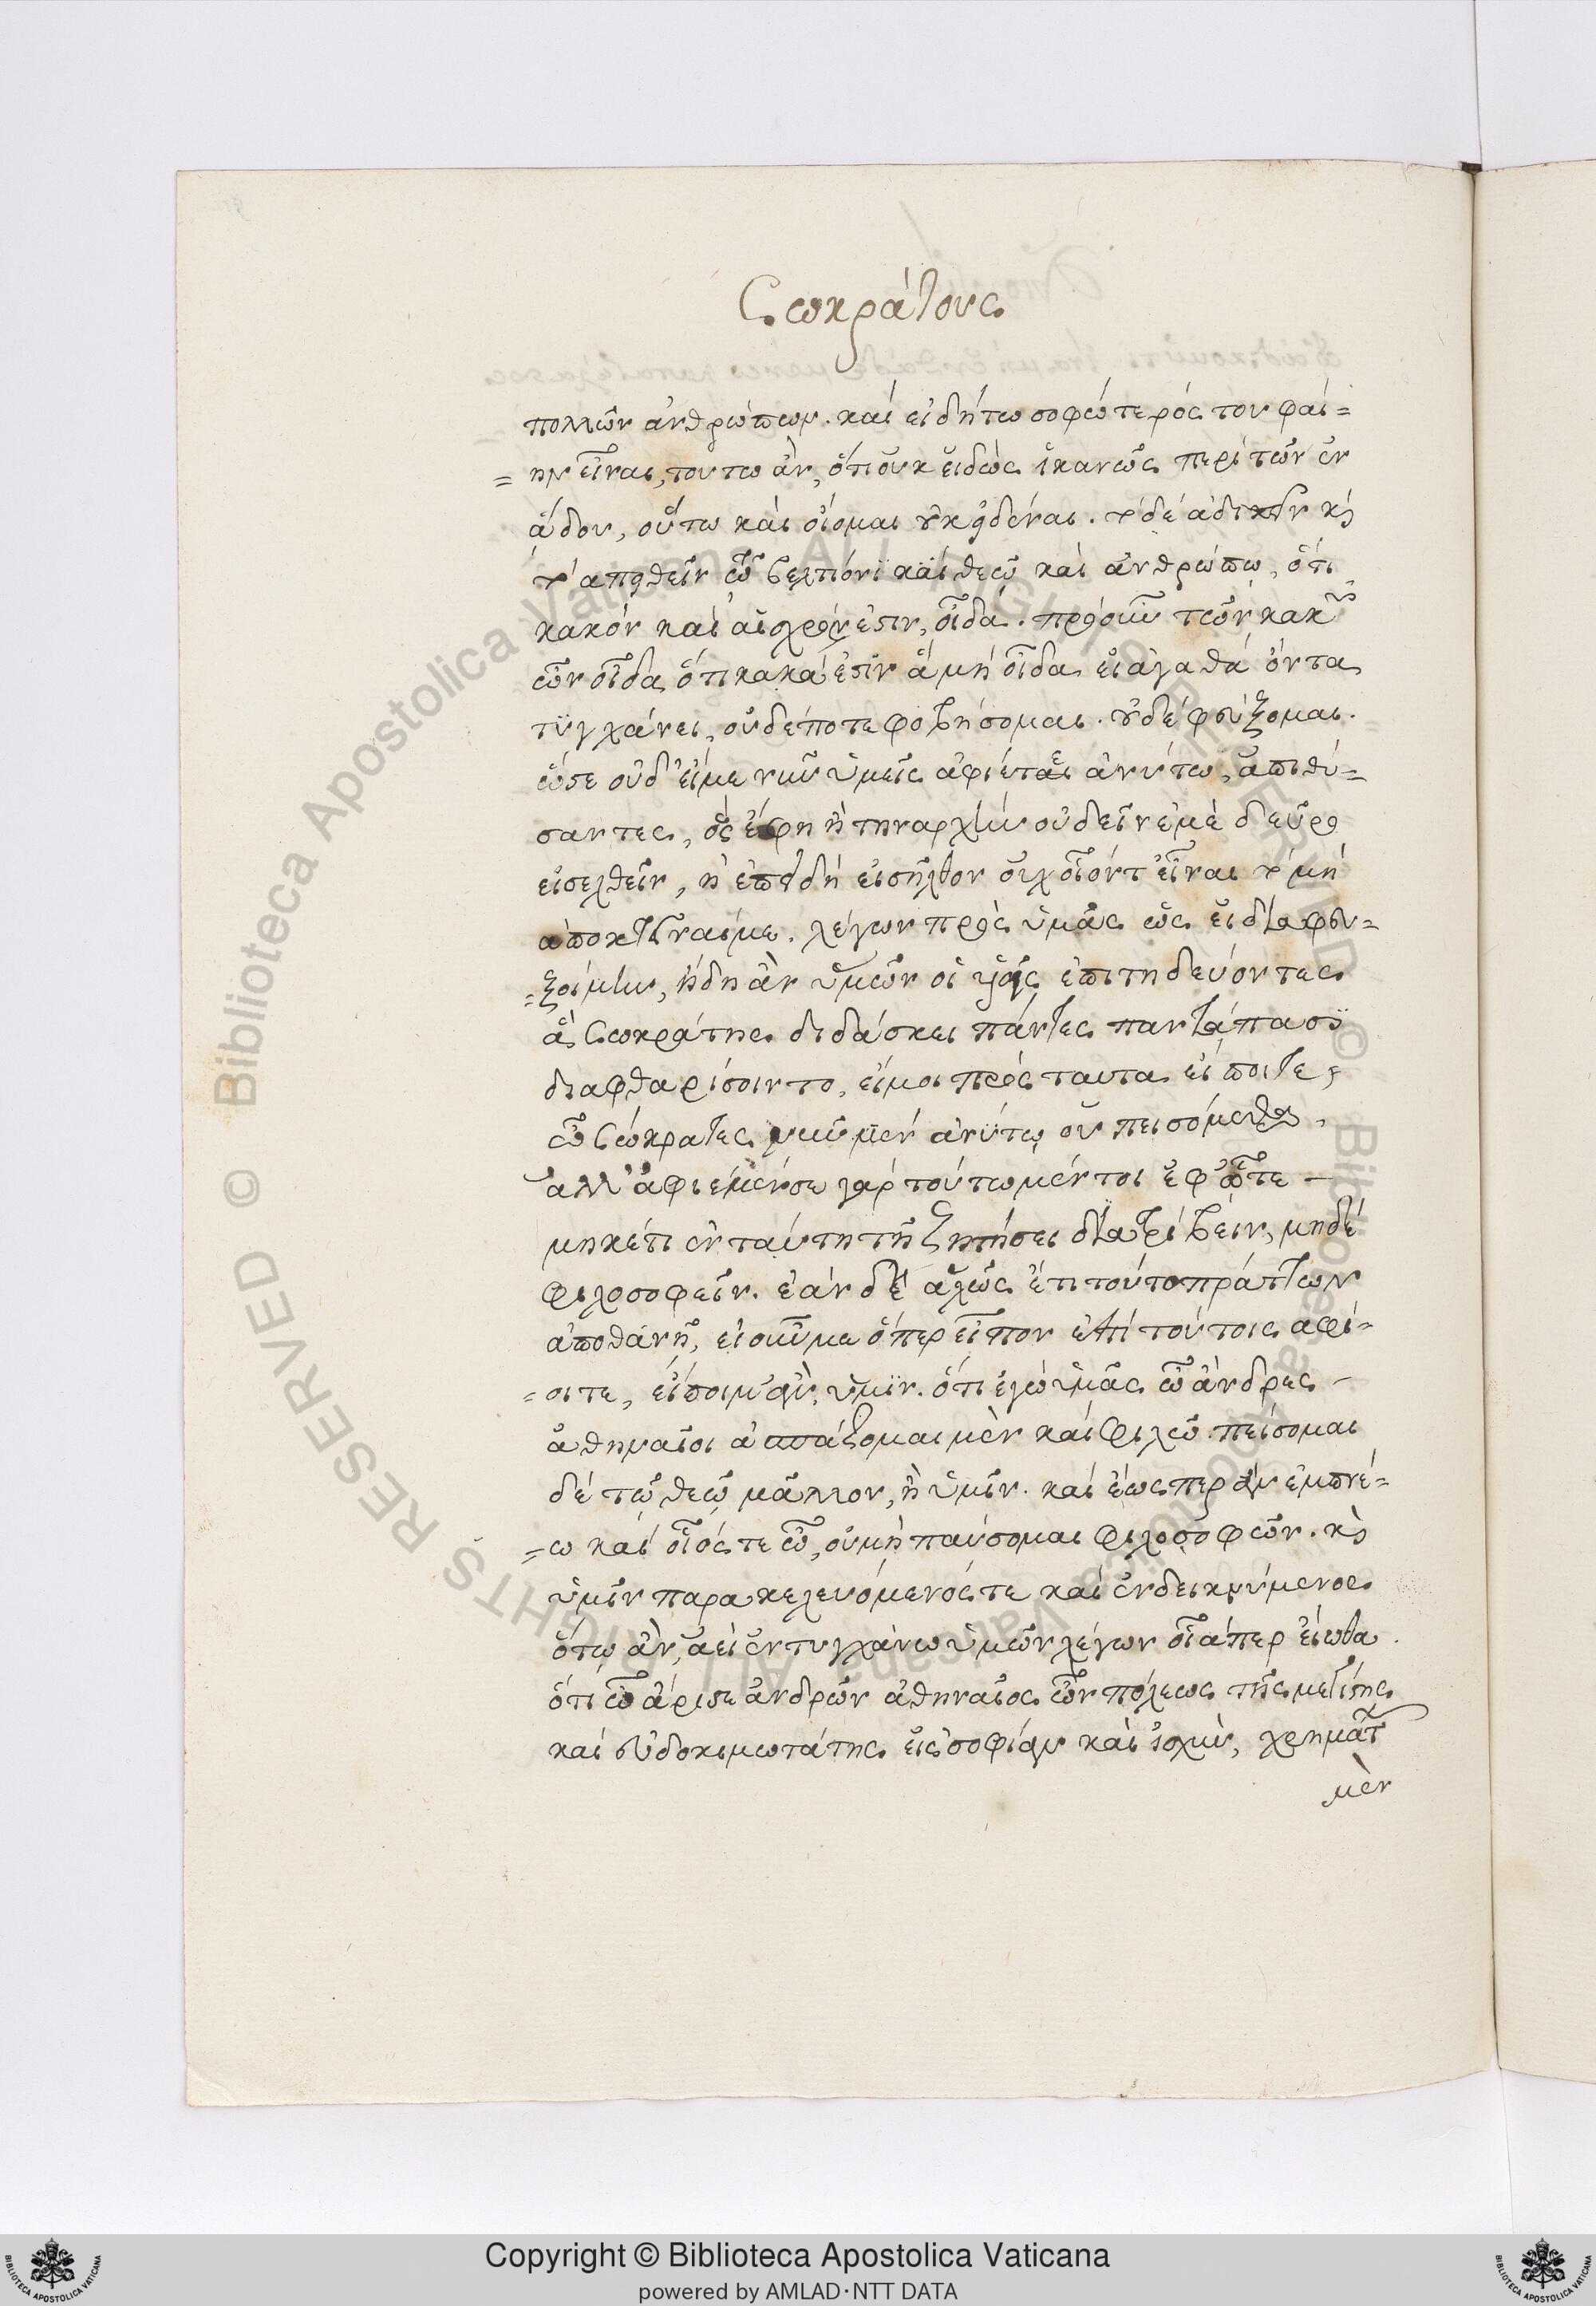 Σωκράτους
πολλῶν ἀνθρώπων. καί εἰ δή τω σοφώτερός του φαί=
=ην εἶναι, τουτω ἀν, ὅτι οὐκ εἰδὼς ἱκανῶς περί τῶν ἐν
ἅδου, οὕτω καὶ οἴομαι οὐκ εἰδέναι. τὸ δέ ἀδικεῖν κỳ
τὸ ἀπειθεῖν τῷ βελτίονϊ καὶ θεῷ καὶ ἀνθρώπῳ, ὅτι
κακόν καὶ αἰσχρόν ἐστιν, οἶδα. πρὸ οὖν τῶν κακῶν
ὧν οἶδα ὅτι κακά ἐστὶν ἅ μή οἶδα εἰ ἀγαθά ὄντα
τϋγχάνει, οὐδέποτε φοβήσομαι. οὐδέ φεύξομαι.
ὥστε οὐδ' εἴ με νῦν ὑμεῖς ἀφίεται ἀνύτω, ἀπιθύ=
σαντες, ὅς ἔφη ἢ την αρχὴν οὐ δεῖν ἐμὲ δεῦρο
εἰσελθεῖν, ἢ ἐπειδή εἰσῆλθον οὐχ οἷόν τ' εἶναι τὸ μή
ἀποκτεῖναί με. λέγων πρὸς ὑμᾶς ὡς εἰ διαφευ=
=ξοίμην, ἤδη ἀν ὑμῶν οἱ υἱεῖς ἐπιτηδεύοντες
ἅ Σωκράτης διδάσκει πάντες παντάπασϊ
διαφθαρίσοιντο, εἴ μοι πρὸς ταυτα εἴποιτε,
ὦ Σώκρατες νῦν μεν ἀνύτῳ οὐ πεισόμεθα,
ἀλλ' ἀφιέμέν σε γαρ τούτω μέντοι ἐφ' ᾧτε –
μηκέτι ἐν ταύτη τῇ ζητήσει διατρίβειν, μηδέ
φιλοσοφεῖν. ἐάν δὲ ἁλῶς ἔτι τούτο πράττων
ἀποθάνῇ, εἰ οὖν με ὅπερ εἶπον ἐπί τούτοις αφί=
=οιτε, εἴποιμ' ἀν ὑμϊν. ὅτι ἐγώ ὑμᾶς ὦ ἄνδρες –
ἀθηναῖοι ἀσπάζομαι μὲν καί φιλῶ. πείσομαι
δέ τῷ θεῷ μᾶλλον, ἢ ὑμῖν. καί ἕως περ ἀν ἐμπνέ=
=ω καί οἷός τε ὦ, οὐ μὴ παύσομαι φιλοσοφῶν. κỳ
ὑμῖν παρακελευόμενός τε καὶ ἐνδεικνύμενος
ὅτῳ ἀν ἀεὶ ἐντυγχάνω ὑμῶν λέγων οἷά περ εἴωθα.
ὅτι ὦ ἄριστε ἀνδρῶν ἀθηναῖος ὢν πόλεως τῆς μεγίστης
καί εὐδοκιμωτάτης εἰς σοφίαν καὶ ἰσχὺν, χρημάτ
μὲν